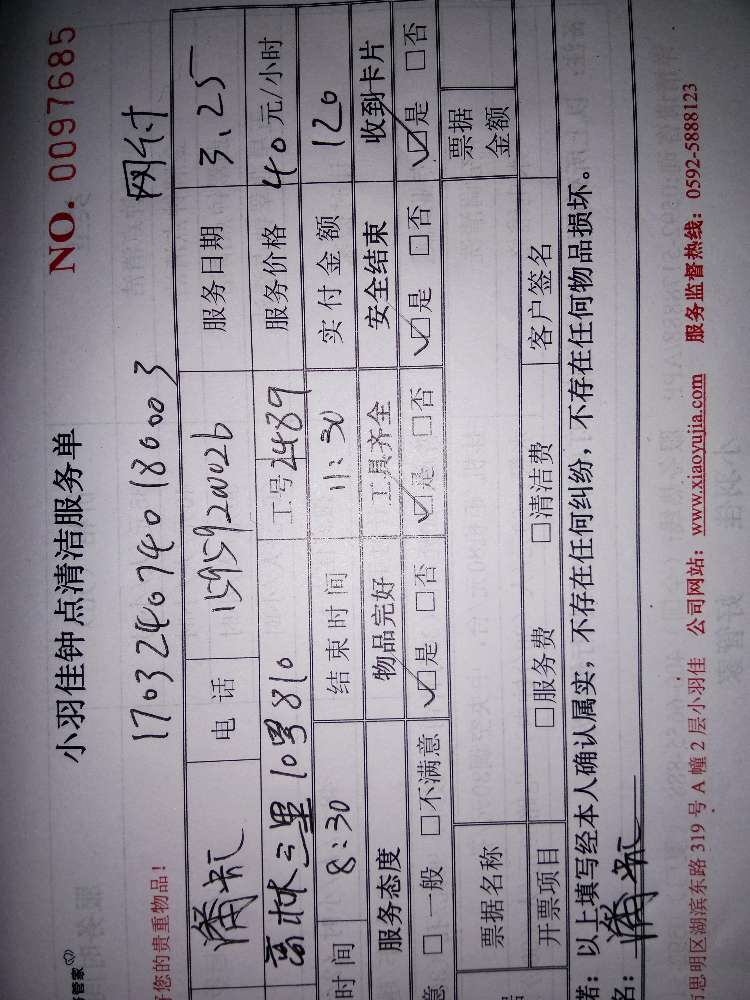 小羽佳钟点清洁服务单 NO. 0097685
管家
您的贵重物品! 网付
电话 服务日期 3.25
高林三里10号810 工号 2489 服务价格 40元/小时
时间 8:30 结束时间 11:30 实付金额 120
服务态度 物品完好 工具齐全 安全结束 收到卡片
意 □一般 □不满意 ☑是 □否 ☑是 □否 ☑是 □否 ☑是 □否
票据名称 票据金额
开票项目 □服务费 □清洁费 客户签名
诺:以上填写经本人确认属实,不存在任何纠纷,不存在任何物品损坏。
名:
思明区湖滨东路 319 号 A 幢 2 层小羽佳 公司网站:www.xiaoyujia.com 服务监督热线:0592-5888123